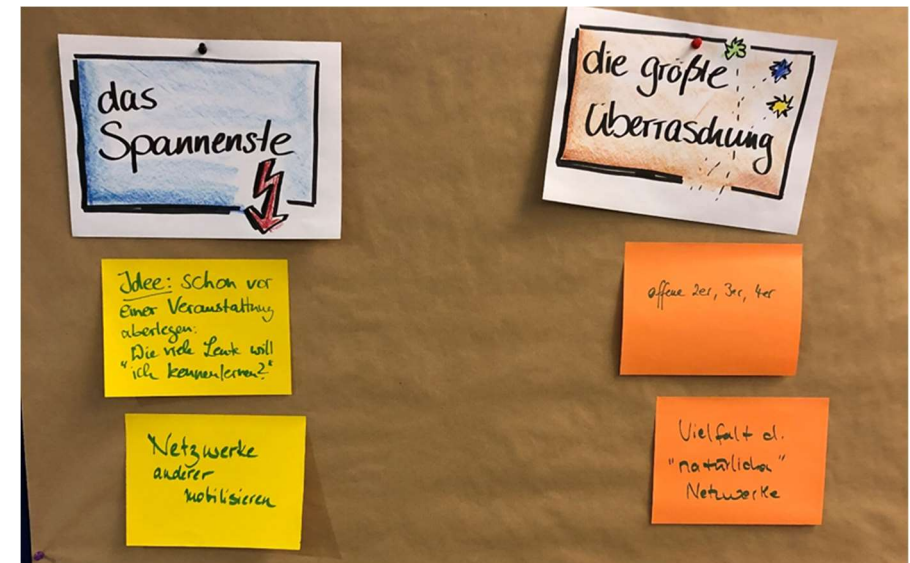 das
Spannenste
Idee: schon vor
einer Veranstaltung
überlegen:
"Die viele Leute will
ich kennenlernen?"
Netzwerke
anderer
mobilisieren
die größte
Überraschung
offene 2er, 3er, 4er
Vielfalt d.
"natürlicher"
Netzwerke